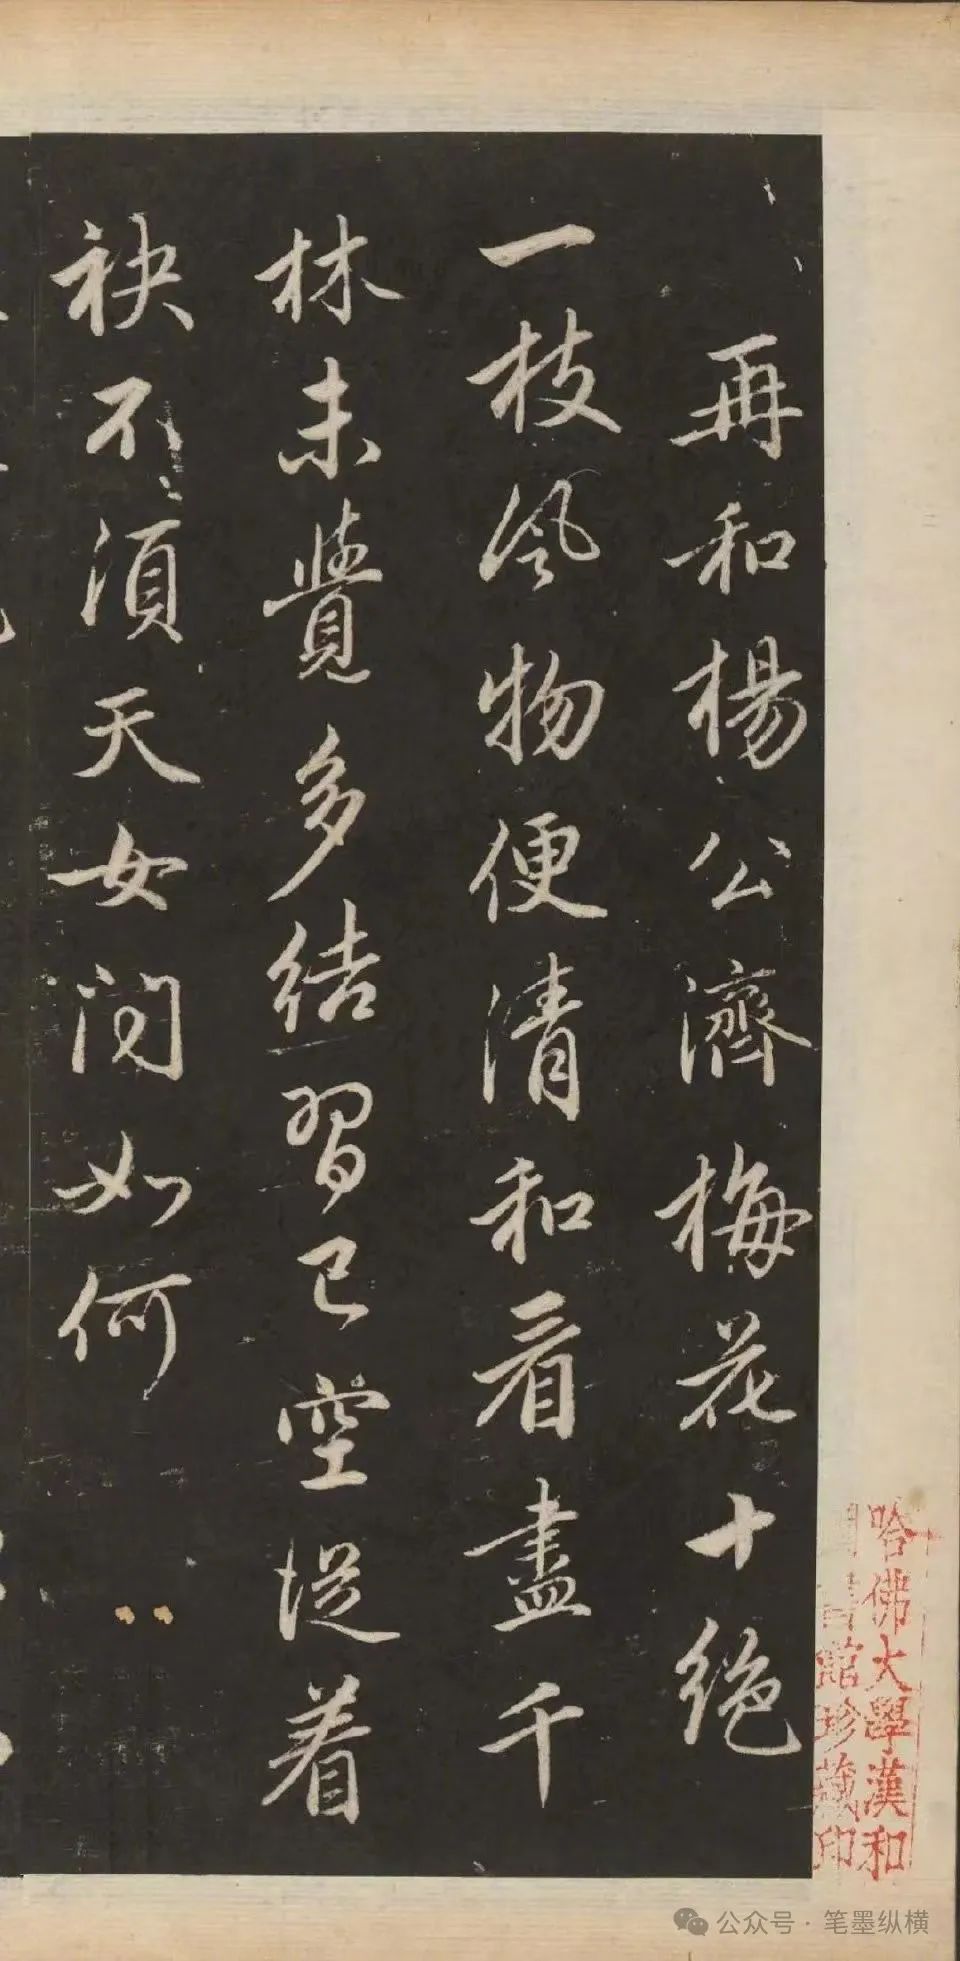 再和楊公濟梅花十絶
一枝風物便清和看盡千
林未覺多結習已空從着
袂不須天女問如何
哈佛大學漢和
圖書館珍藏印
公众号·笔墨纵横